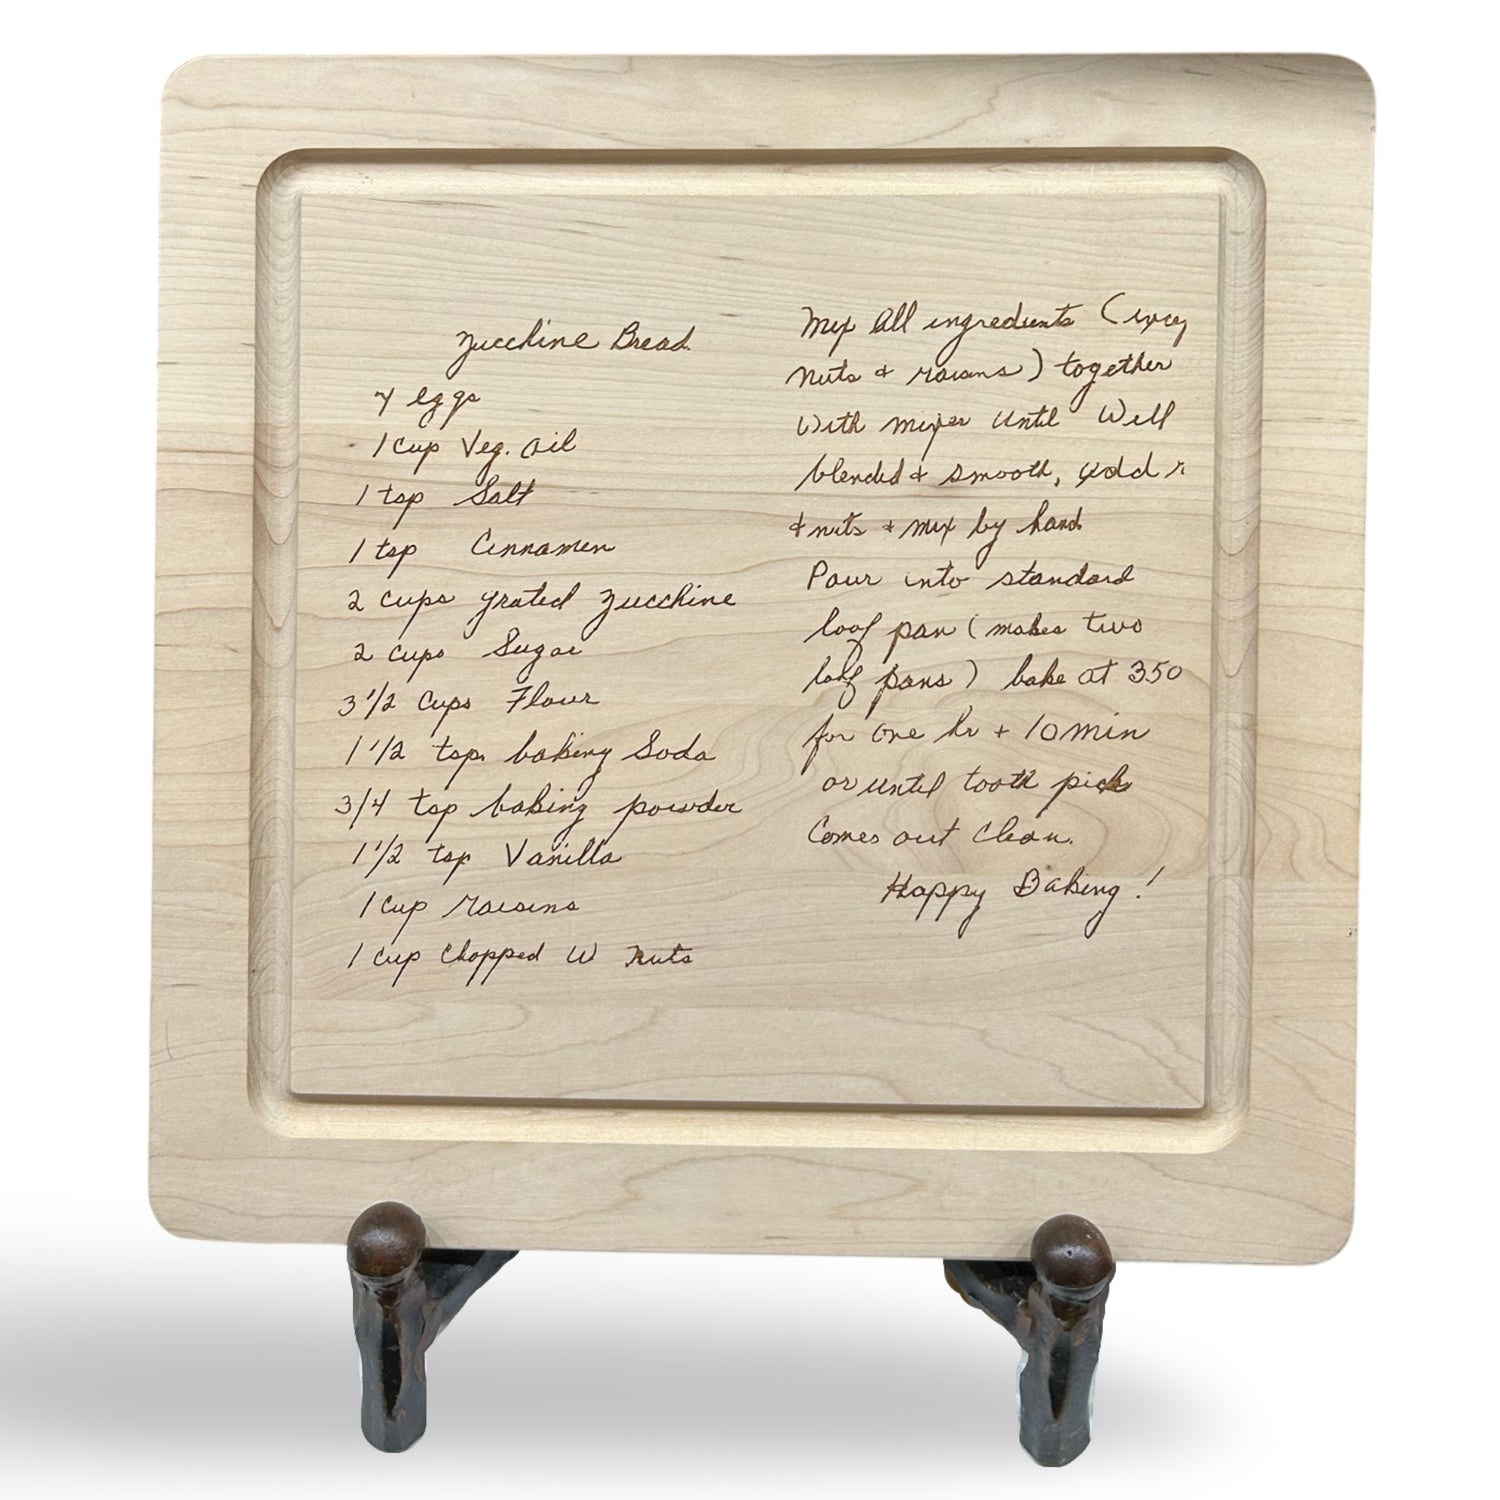 Zucchine Bread
4 eggs
1 cup Veg. Oil
1 tsp Salt
1 tsp Cinnamen
2 cups grated zucchine
2 cups Sugar
3 1/2 Cups Flour
1 1/2 tsp. baking Soda
3/4 tsp baking powder
1 1/2 tsp Vanilla
1 cup raisins
1 cup Chopped W nuts
Mix All ingredients (
nuts + raisins) together
With mixer Until Well
blended + smooth, add r
+ nuts + mix by hand
Pour into standard
loaf pan (makes two
loaf pans) bake at 350
for one hr + 10 min
or until tooth pick
Comes out Clean.
Happy Baking!